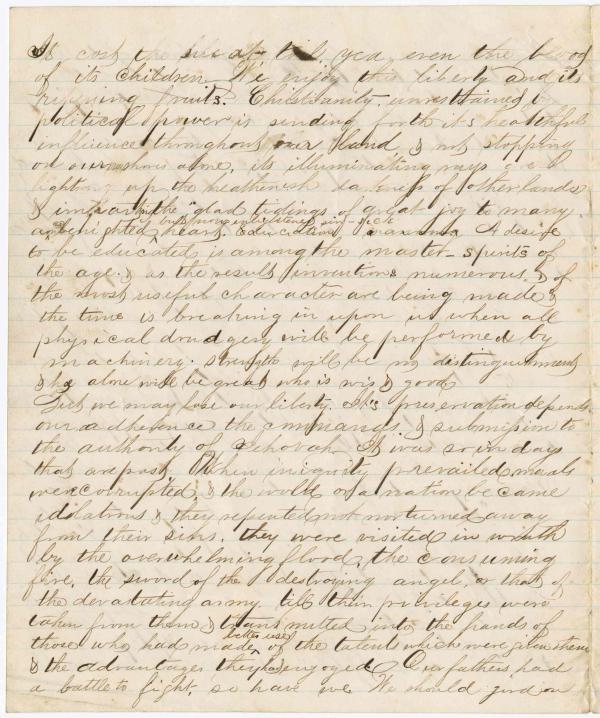 It cost the life of toil, yea, even the blood
of its children. We enjoy this liberty and its
ripening fruits. Christianity unrestrained by
political power is sending forth its healthful
influence throughout our land, & not stopping
on our shores alone, its illuminating rays are
lighting up the heathenish darkness of other lands
& imparting the "glad tidings of great joy to many
a benighted heart. Education A desire
to be educated is among the master-spirits of
the age. & as the result inventions numerous & of
the most useful character are being made &
the time is breaking in upon us when all
physical drudgery will be performed by
machinery. Strength will be no distinguishment
& he alone will be great who is wise & good
Yet we may lose our liberty. It's preservation depends
our adherence the commands & submission to
the authority of Jehovah. It was so in days
that are past. When iniquity prevailed morals
were corrupted, & the world or a nation became
idolatrous & they repented not nor turned away
from their sins. they were visited in wrath
by the overwhelming flood, the consuming
fire, the sword of the destroying angel, or that of
the devastating army till their privileges were
taken from them & transmitted into the hands of
those who had made better use of the talents which were given them
& the advantages they had enjoyed. Our fathers had
a battle to fight, so have we. We should gird on